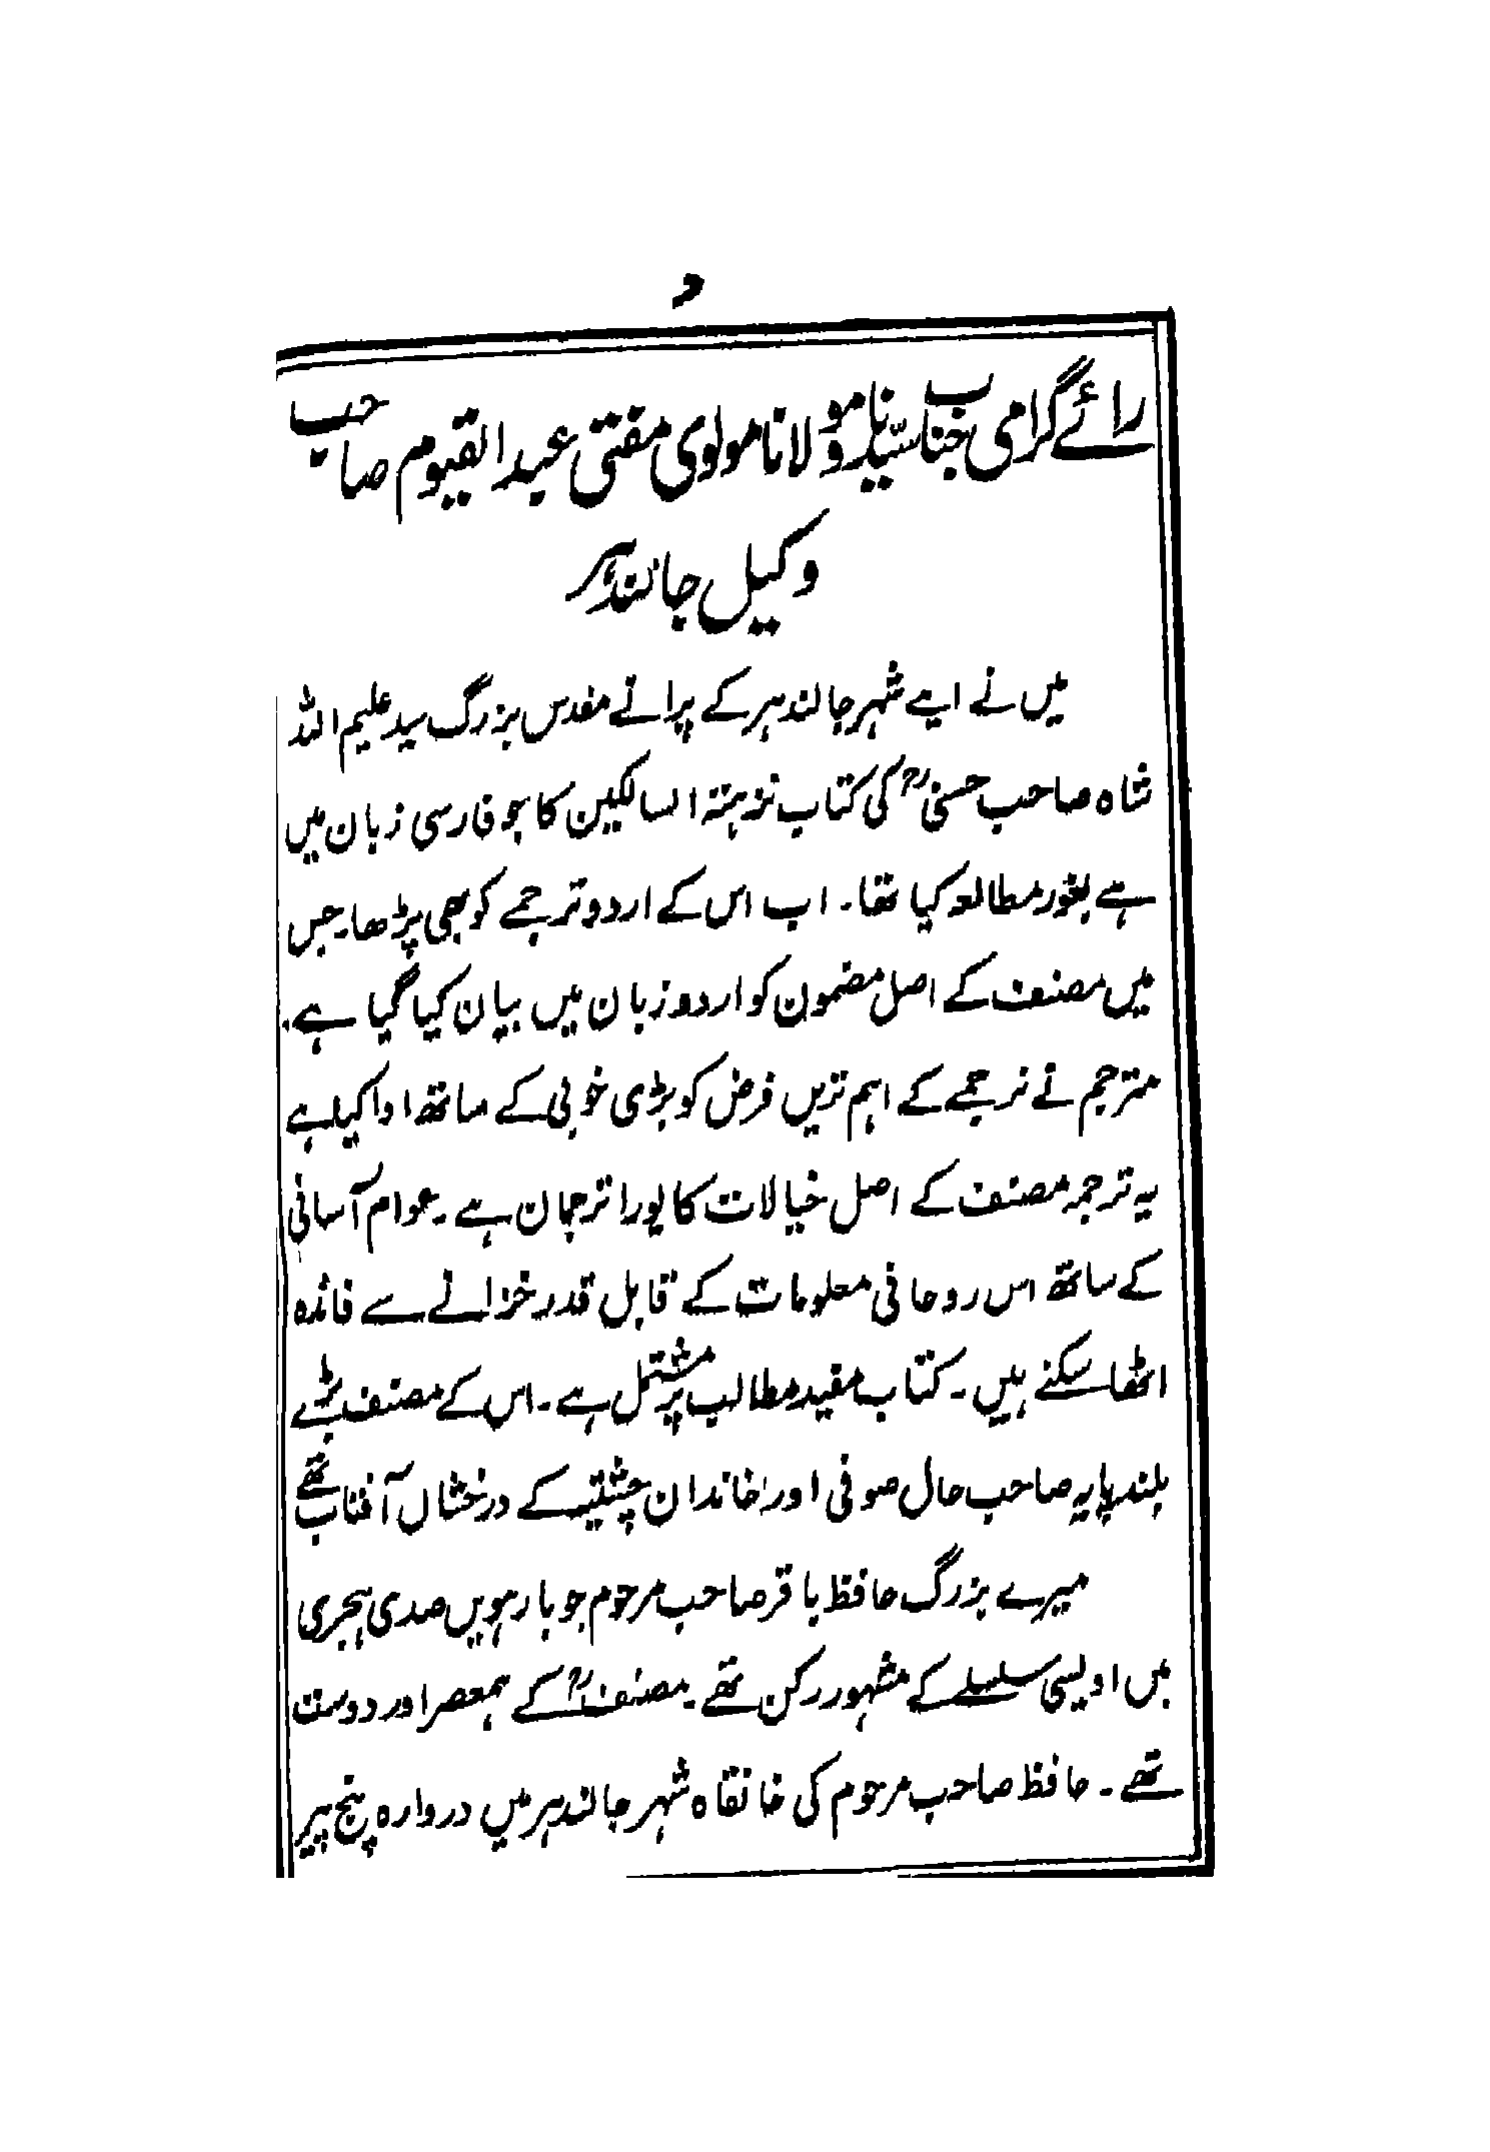 د
رائے گرامی جناب سیدنا و مولانا مولوی مفتی عبدالقیوم صاحب
وکیل جالندہر
میں نے اپنے شہر جالندہر کے پرانے مقدس بزرگ سید علیم اللہ
شاہ صاحب حسنیؒ کی کتاب نزہتہ السالکین کا جو فارسی زبان میں
ہے بغور مطالعہ کیا تھا۔ اب اس کے اردو ترجمے کو بھی پڑھا۔ جس
میں مصنف کے اصل مضمون کو اردو زبان میں بیان کیا گیا ہے۔
مترجم نے ترجمے کے اہم تریں فرض کو بڑی خوبی کے ساتھ ادا کیا ہے
یہ ترجمہ مصنف کے اصل خیالات کا پورا ترجمان ہے۔ عوام آسانی
کے ساتھ اس روحانی معلومات کے قابل قدر خزانے سے فائدہ
اٹھا سکتے ہیں۔ کتاب مفید مطالب پر مشتمل ہے۔ اس کے مصنف بڑے
بلند پایہ صاحب حال صوفی اور خاندان چشتیہ کے درخشاں آفتاب تھے
میرے بزرگ حافظ باقر صاحب مرحوم جو بارہویں صدی ہجری
میں اویسی سلسلے کے مشہور رکن تھے۔ مصنفؒ کے ہمعصر اور دوست
تھے۔ حافظ صاحب مرحوم کی خانقاہ شہر جالندہر میں دروازہ پنج پیر